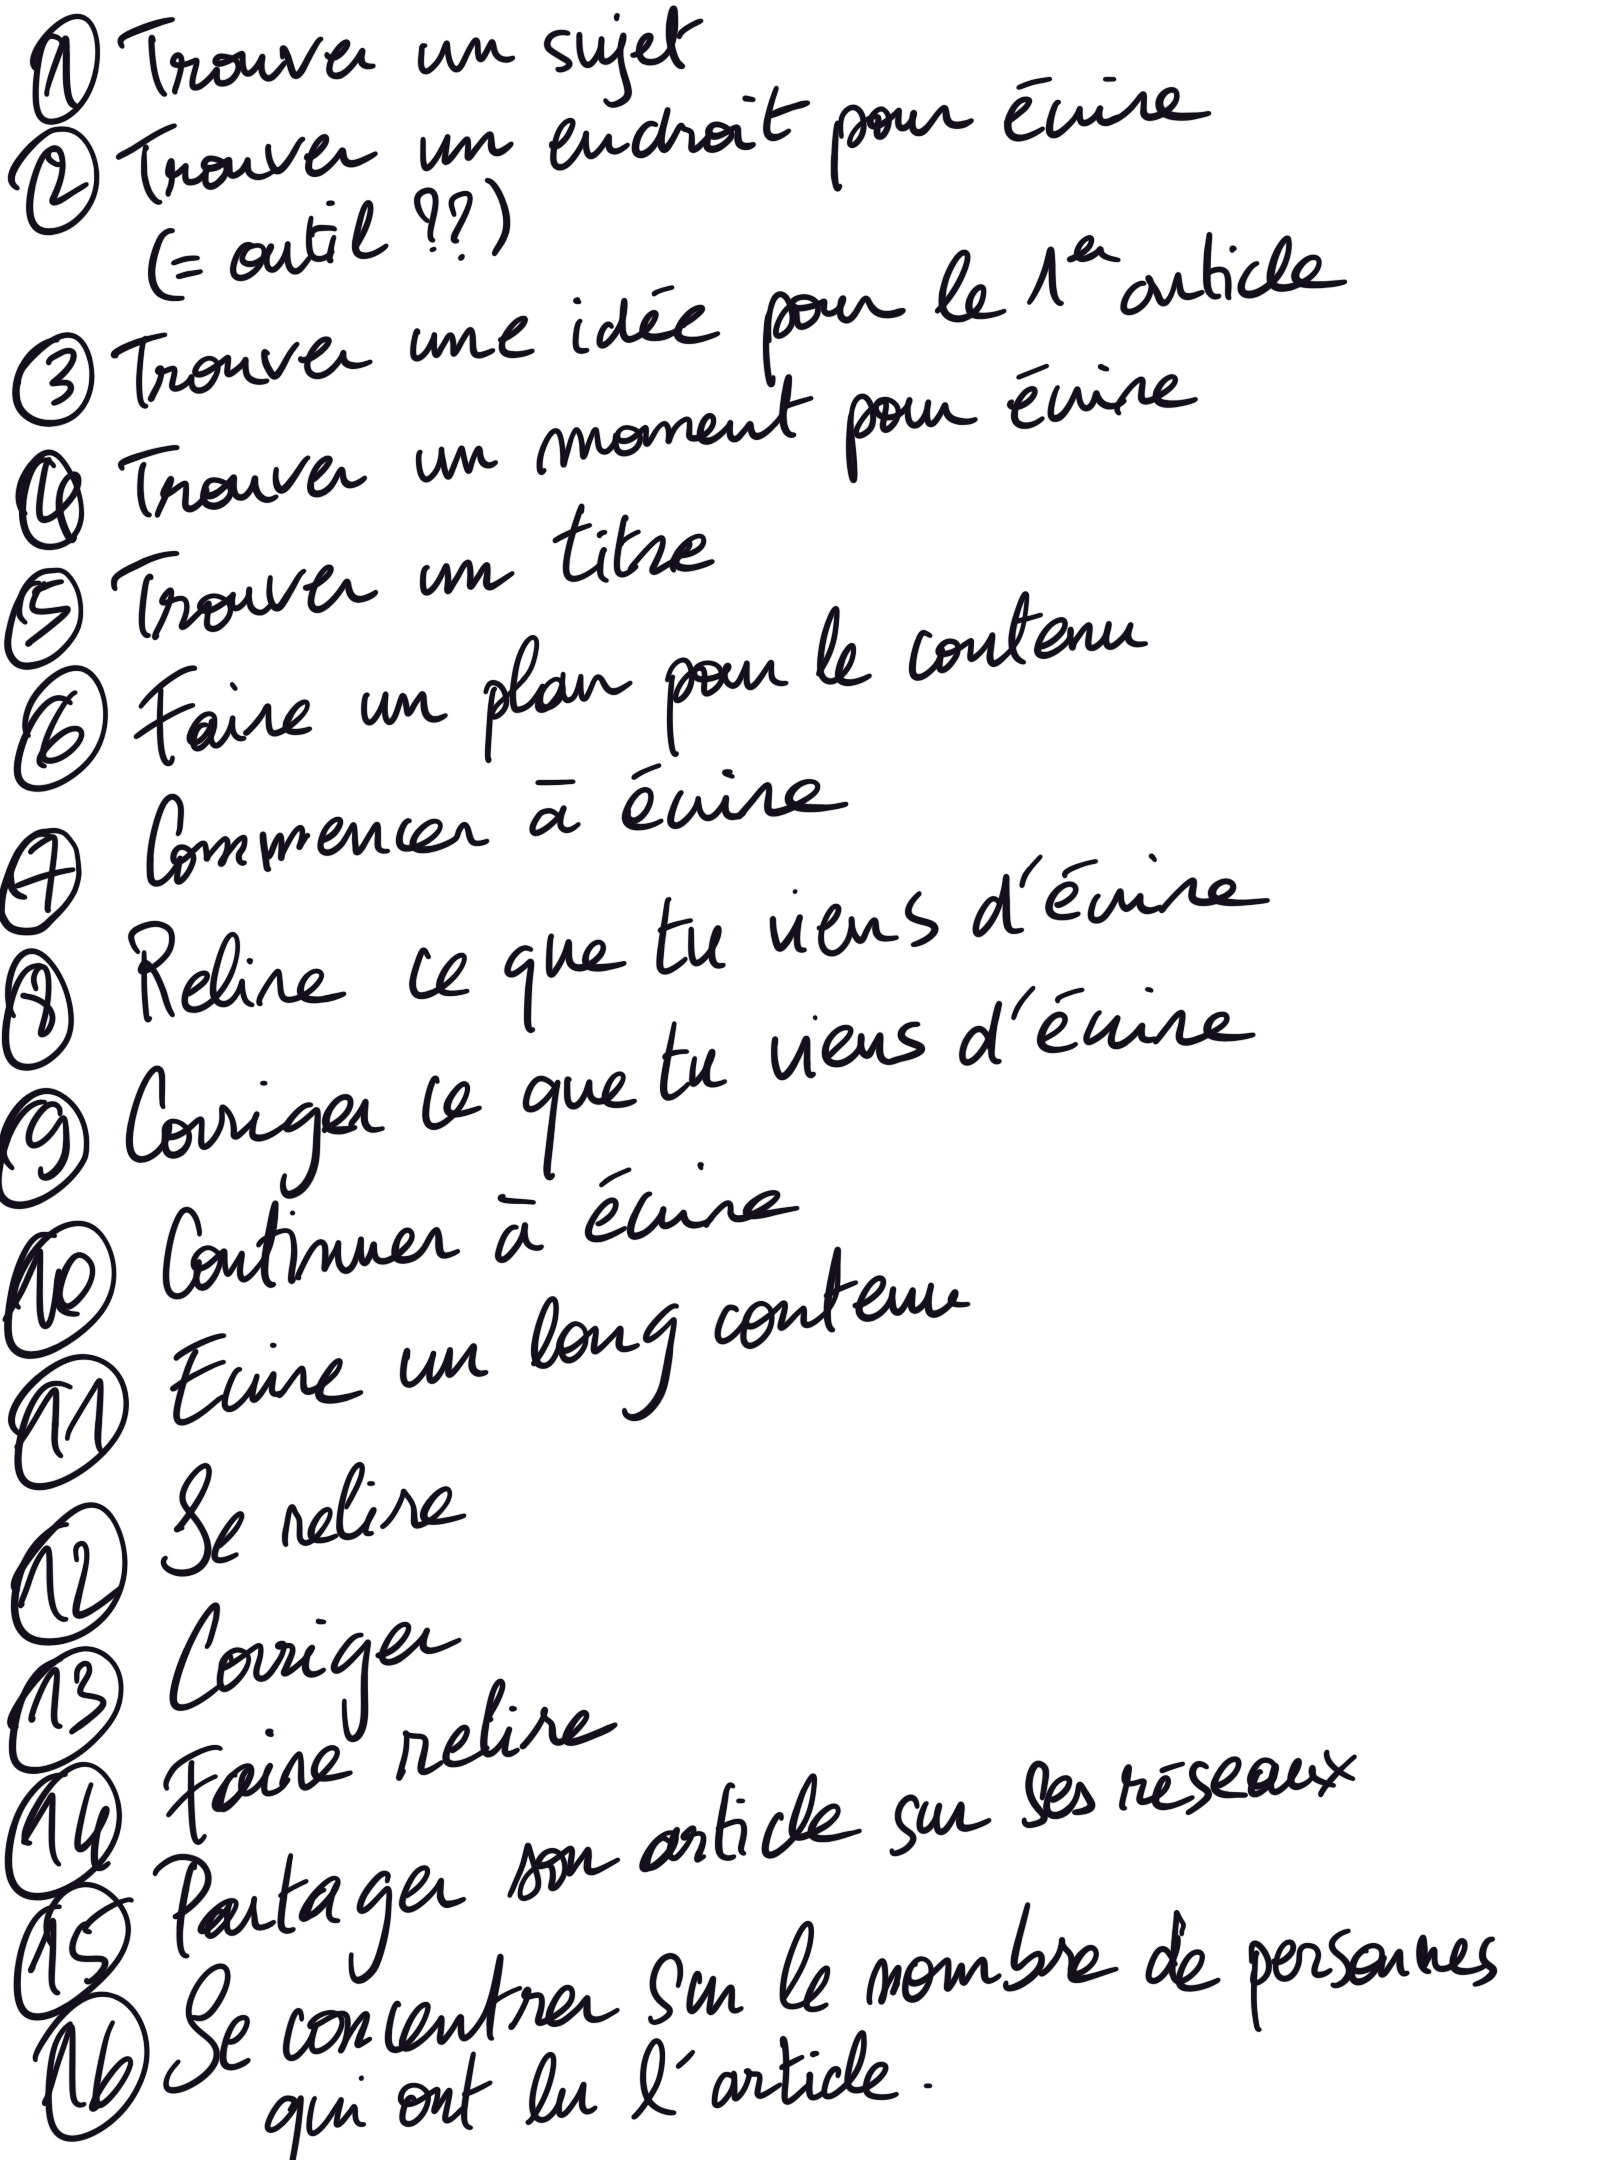 ① Trouver un sujet
② Trouver un endroit pour écrire
(= outil ??)
③ Trouver une idée pour le 1er article
④ Trouver un moment pour écrire
⑤ Trouver un titre
⑥ Faire un plan pour le contenu
⑦ Commencer à écrire
⑧ Relire ce que tu viens d'écrire
⑨ Corriger ce que tu viens d'écrire
⑩ Continuer à écrire
⑪ Ecrire un long contenu
⑫ Se relire
⑬ Corriger
⑭ Faire relire
⑮ Partager son article sur ses réseaux
⑯ Se concentrer sur le nombre de personnes
qui ont lu l'article.